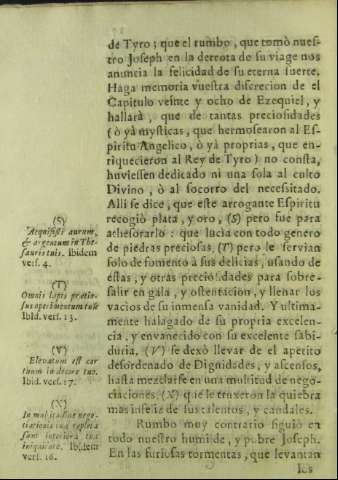 de Tyro; que el rumbo, que tomò nues-
tro Joseph en la derrota de su viage nos
anuncia la felicidad de su eterna suerte.
Haga memoria vuestra discrecion de el
Capitulo veinte y ocho de Ezequiel, y
hallarà, que de tantas preciosidades
(ò yà mysticas, que hermosearon al Es-
piritu Angelico, ò yà proprias, que en-
riquecieron al Rey de Tyro) no consta,
huviessen dedicado ni una sola al culto
Divino, ò al socorro del necessitado.
Alli se dice, que este arrogante Espiritu
recogiò plata, y oro, (S) pero fue para
athesorarlo: que lucia con todo genero
de piedras preciosas, (T) pero le servian
solo de fomento à sus delicias, usando de
éstas, y otras preciosidades para sobre-
salir en gala, y ostentacion, y llenar los
vacios de su inmensa vanidad. Y ultima-
mente halagado de su propria excelen-
cia, y envanecido con su excelente sabi-
duria, (V) se dexò llevar de el apetito
desordenado de Dignidades, y ascensos,
hasta mezclarse en una multitud de nego-
ciaciones, (X) que le truxeron la quiebra
mas infeliz de sus talentos, y caudales.
Rumbo muy contrario siguiò en
todo nuestro humilde, y pobre Joseph.
En las furiosas tormentas, que levantan
los
(S)
Acquisisti aurum,
& argentum in The-
sauris tuis. Ibidem
vers. 4.
(T)
Omnis lapis pretio-
sus operimentum tuum
Ibid. vers. 13.
(V)
Elevatum est cor
tuum in decore tuo.
Ibid. vers. 17.
(X)
In multitudine nego-
tiationis tuæ repleta
sunt interiora tua
iniquitate. Ibidem
vers. 16.